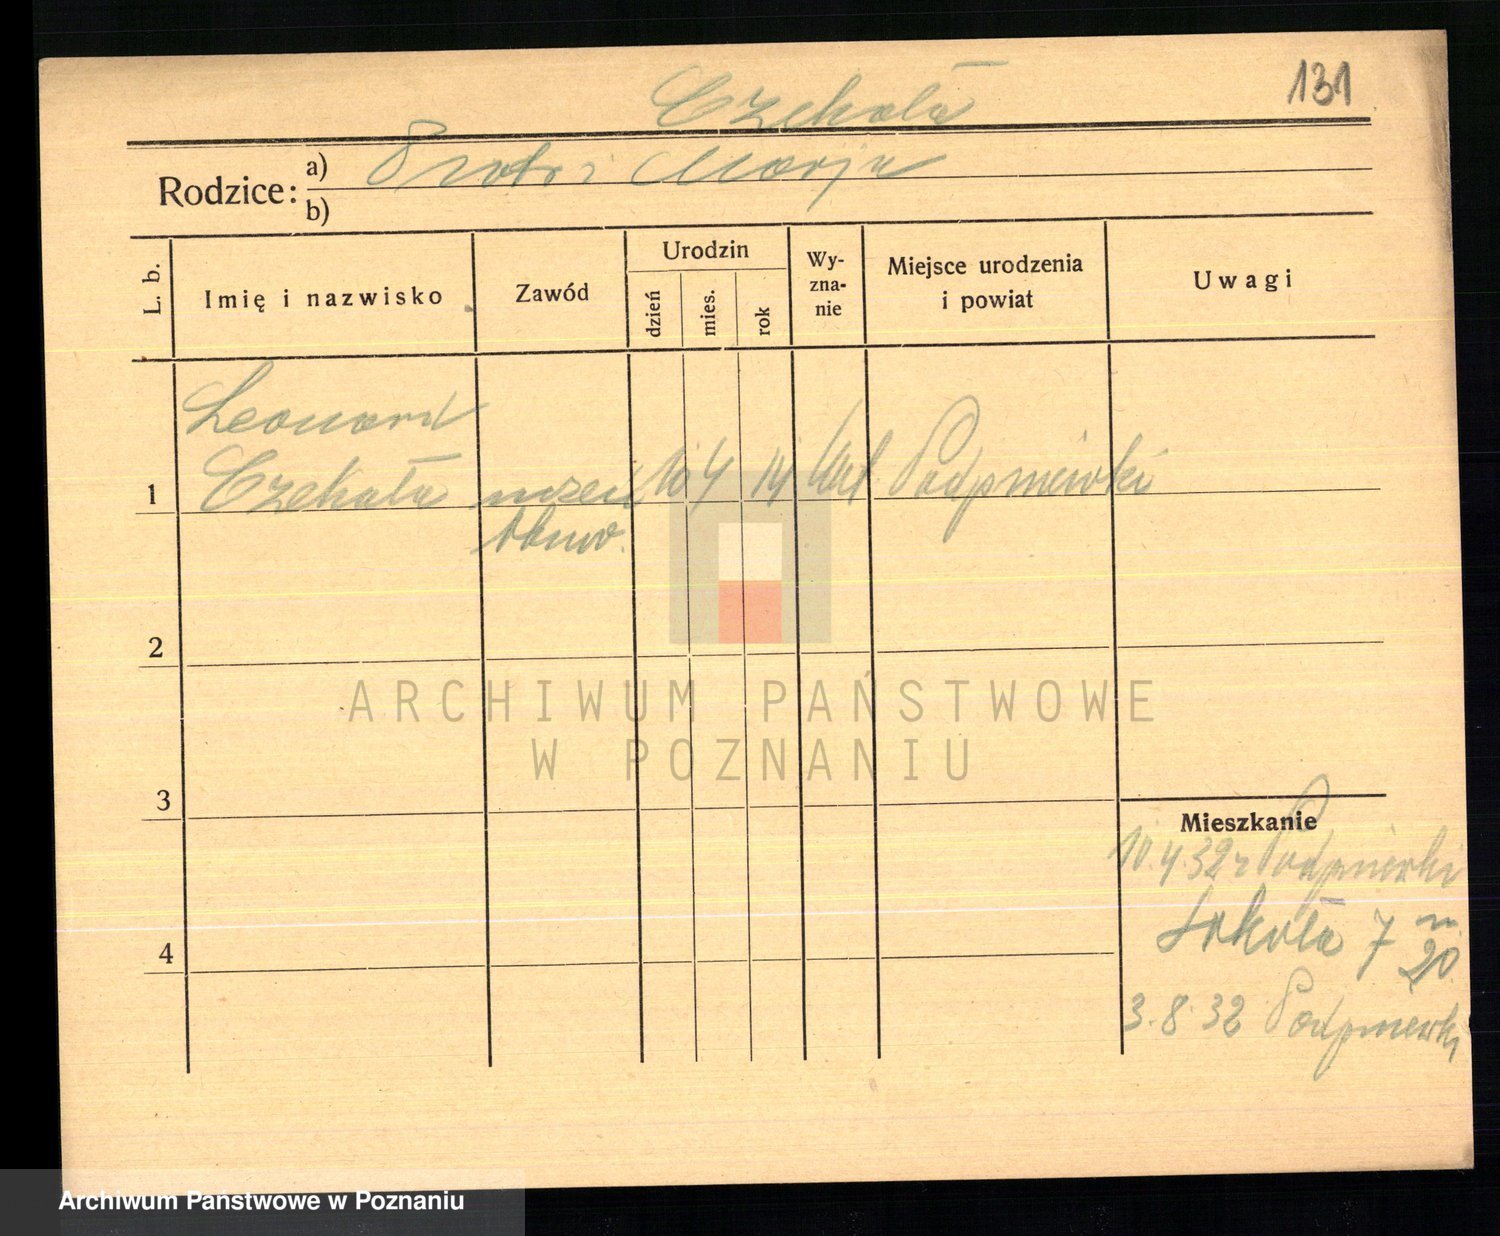 131
Czekała
Rodzice:
a) Piotr i Marja
b)
L. b.
Imię i nazwisko
Zawód
Urodzin
dzień
mies.
rok
Wy-
zna-
nie
Miejsce urodzenia
i powiat
Uwagi
Leonard
1 Czekała uczeń 10 4 14 kat Podpniewki
2
3
4
ARCHIWUM PAŃSTWOWE
W POZNANIU
Mieszkanie
10.4.32 z Podpniewki
Sokoła 7 m
20
3.8.32 Podpniewki
Archiwum Państwowe w Poznaniu